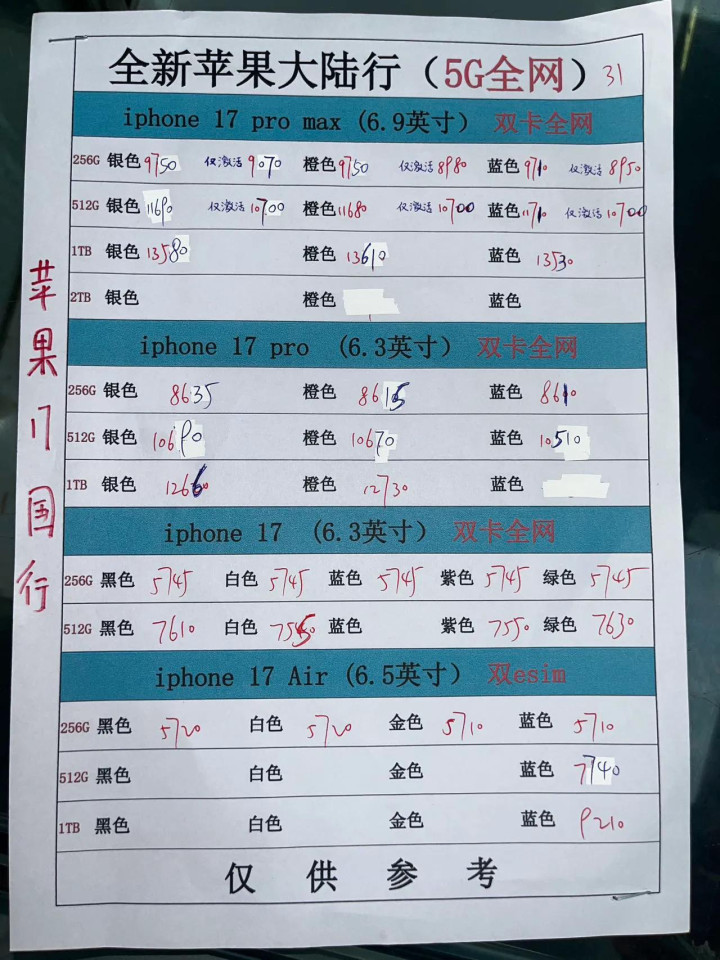 全新苹果大陆行（5G全网）31
iphone 17 pro max (6.9英寸） 双卡全网
256G 银色 9750 仅激活 9070 橙色 9750 仅激活 8980 蓝色 9710 仅激活 8950
512G 银色 11690 仅激活 10700 橙色 11680 仅激活 10700 蓝色 11710 仅激活 10700
1TB 银色 13580 橙色 13610 蓝色 13530
2TB 银色 橙色 蓝色
iphone 17 pro (6.3英寸） 双卡全网
256G 银色 8635 橙色 8615 蓝色 8610
512G 银色 10690 橙色 10670 蓝色 10510
1TB 银色 12660 橙色 12730 蓝色
iphone 17 (6.3英寸） 双卡全网
256G 黑色 5745 白色 5745 蓝色 5745 紫色 5745 绿色 5745
512G 黑色 7610 白色 蓝色 紫色 7550 绿色 7630
iphone 17 Air (6.5英寸） 双esim
256G 黑色 5720 白色 5720 金色 5710 蓝色 5710
512G 黑色 白色 金色 蓝色 7740
1TB 黑色 白色 金色 蓝色 9210
仅供参考
苹果17国行